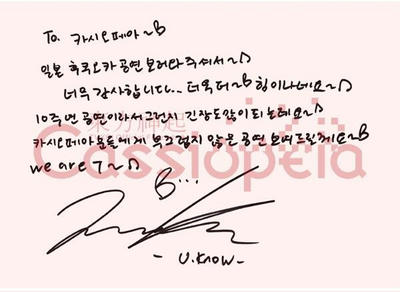 To. 카시오페아~B
일본 후쿠오카 공연 보러와주셔서~♪
너무 감사합니다... 더욱더~B 힘이나네요~♪
10주년 공연이라서그런지 긴장도많이 되는데요~♪
카시오페아분들에게 부끄럽지 않은 공연 보여드릴게요~B
we are T~♪
B...
- U.Know -
東方神起
Cassiopeia